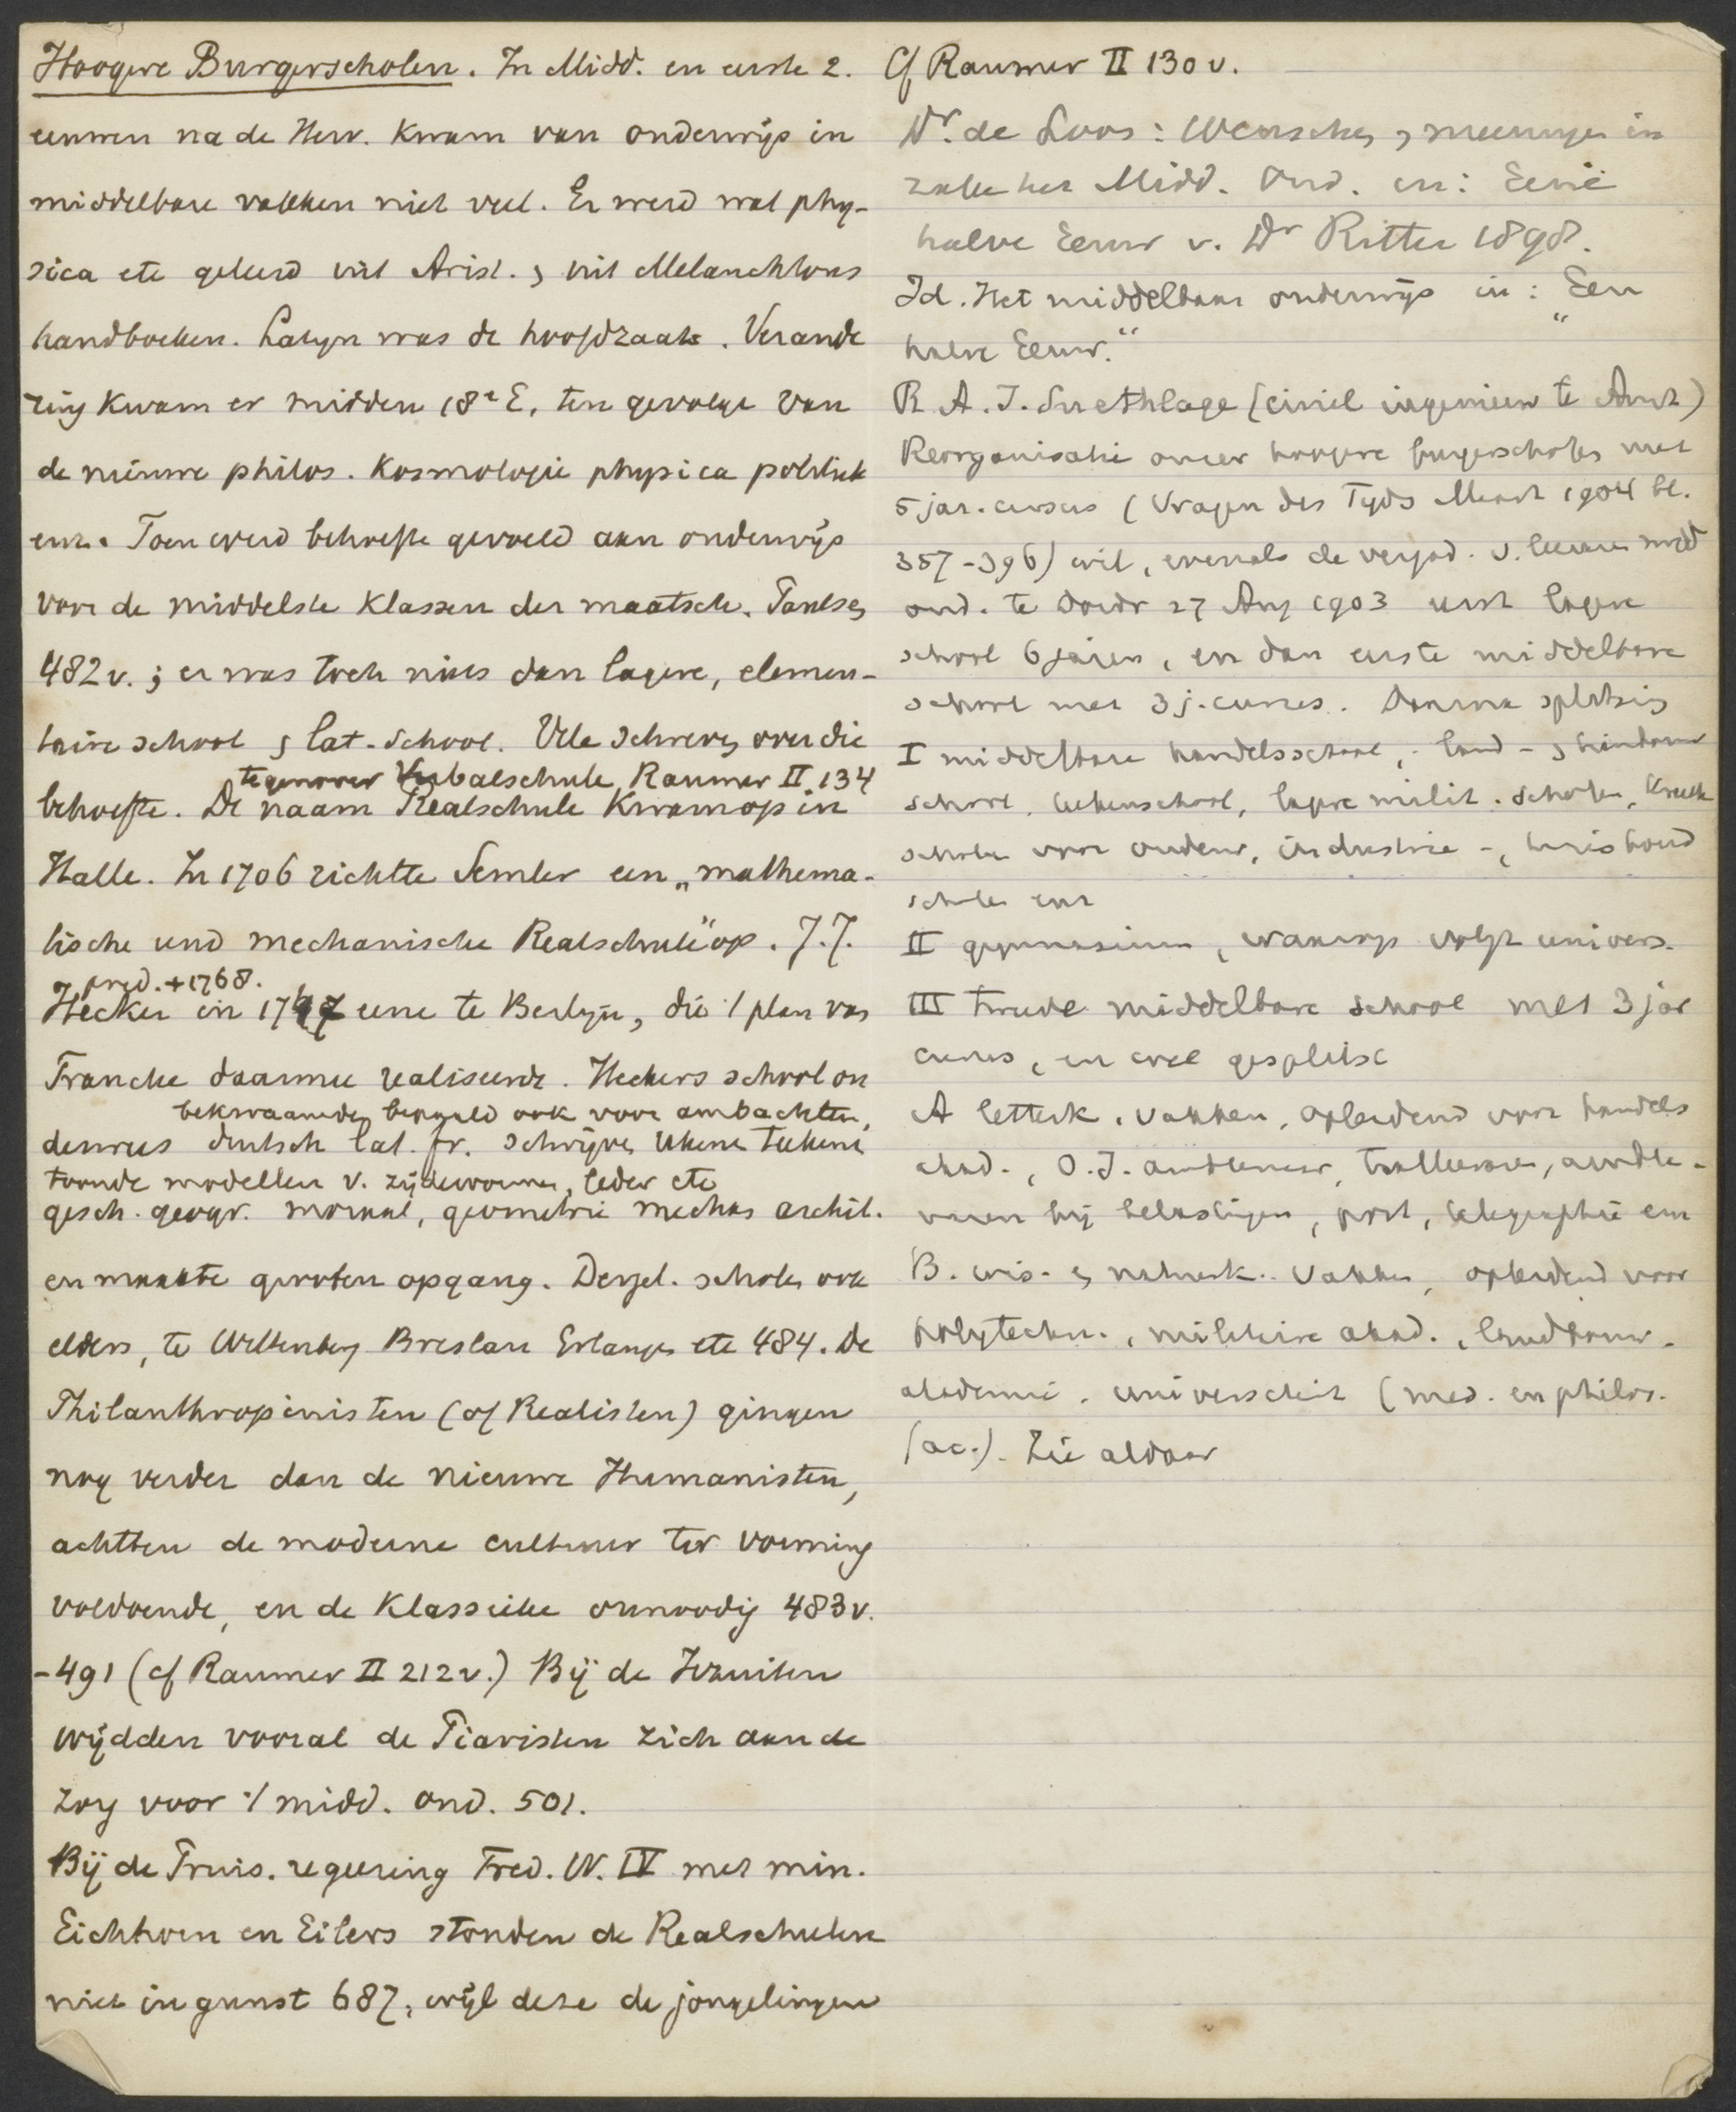 Hoogere Burgerscholen. In Midd. en eerste 2.
eeuwen na de Herv. kwam van onderwijs in
middelbare vakken niet veel. Er werd wat phy-
sica etc geleerd uit Arist. , uit Melanchthons
handboeken. Latyn was de hoofdzaak. Verande
ring kwam er midden 18e E, ten gevolge van
de nieuwe philos. Kosmologie physica politiek
enz. Toen werd behoefte gevoeld aan onderwijs
voor de middelste klassen der maatsch. Paulsen
482 v. ; er was toch niets dan lagere, elemen-
taire school , lat-school. Vele schreven over die
tegenover Verbalschule Raumer II 134
behoefte. De naam Realschule kwam op in
Halle. In 1706 richtte Semler een „mathema-
tische und mechanische Realschule" op. J.J.
pred. +1768.
Hecker in 1747 eene te Berlyn, die 't plan van
Francke daarmee realiseerde. Heckers school on
bekwaamden bepaald ook voor ambachten,
derwees duitsch lat. fr. schrijven rekenen teekenen
toonde modellen v. zijdewormen, leder etc
gesch. geogr. moraal, geometrie mechan archit.
en maakte grooten opgang. Dergel. scholen ook
elders, te Wittenberg Breslau Erlangen etc 484. De
Philanthropinisten (of Realisten) gingen
nog verder dan de nieuwe Humanisten,
achtten de moderne cultuur ter vorming
voldoende, en de klassieke onnoodig 483 v.
-491 (cf Raumer II 212 v.) Bij de Jezuiten
wijdden vooral de Piaristen zich aan de
zorg voor 't midd. ond. 501.
Bij de Pruis. regeering Fred. W. IV met min.
Eichhorn en Eilers stonden de Realschulen
niet in gunst 687, wijl deze de jongelingen
Cf Raumer II 130 v.
Dr. de Loos: Wenschen , meeningen in
zake het Midd. Ond. in: Eene
halve Eeuw v. Dr Ritter 1898.
Id. Het middelbaar onderwijs in: „Een
halve Eeuw."
R. A. I. Snethlage (civiel ingenieur te Amst)
Reorganisatie onzer hoogere burgerscholen met
5 jar. cursus (Vragen des Tijds Maart 1904 bl.
357-396) wil, evenals de vergad. v. leeraren midd
ond. te Dordr 27 Aug 1903 eerst lagere
school 6 jaren, en dan eerste middelbare
school met 3 j. cursus. Daarna splitsing
I middelbare handelsschool, land- , tuinbouw
school, lagere milit. scholen, kweek
scholen voor onderw, industrie -, huishoud
scholen enz
II gymnasium, waarop volgt univers.
III tweede middelbare school met 3 jar
cursus, en wel gesplitst
A letterk. vakken, opleidend voor handels
akad., O.I. ambtenaar, ambte-
naren bij belastingen, post, telegraphie enz
B. wis- en natuurk. vakken, opleidend voor
polytechn., militaire akad., landbouw-
akademie, universiteit (med. en philos.
fac.). Zie aldaar